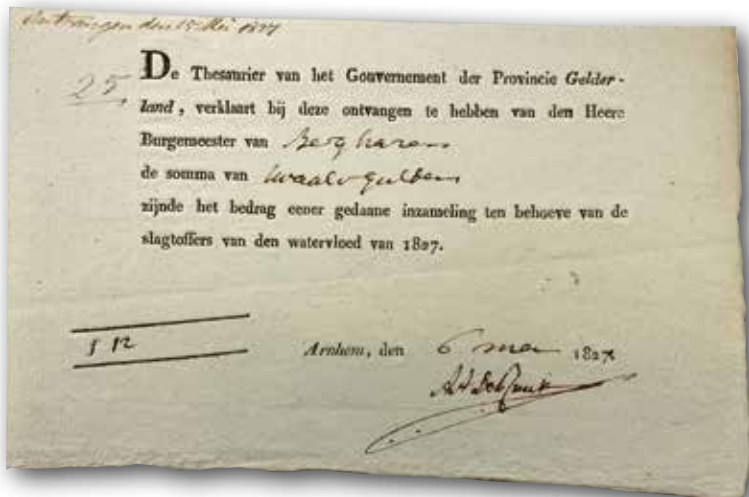 Ontvangen den 15 Mei 1827
25
De Thesaurier van het Gouvernement der Provincie Gelder-
land, verklaart bij deze ontvangen te hebben van den Heere
Burgemeester van Bergharen
de somma van twaalf gulden
zijnde het bedrag eener gedaane inzameling ten behoeve van de
slagtoffers van den watervloed van 1827.
f 12
Arnhem, den 6 mei 1827